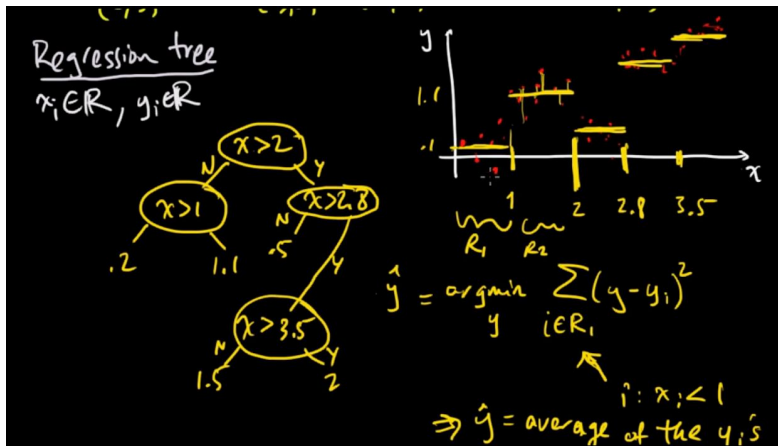 Regression tree
xᵢ∈ℝ, yᵢ∈ℝ
x>2
N Y
x>1
x>2.8
N
.2
1.1
.5
Y
x>3.5
N Y
1.5
2
y
1.1
.1
x
1 2 2.8 3.5
R₁ R₂
ŷ = argmin Σ (y-yᵢ)²
y i∈R₁
i: xᵢ<1
⇒ ŷ = average of the yᵢ's